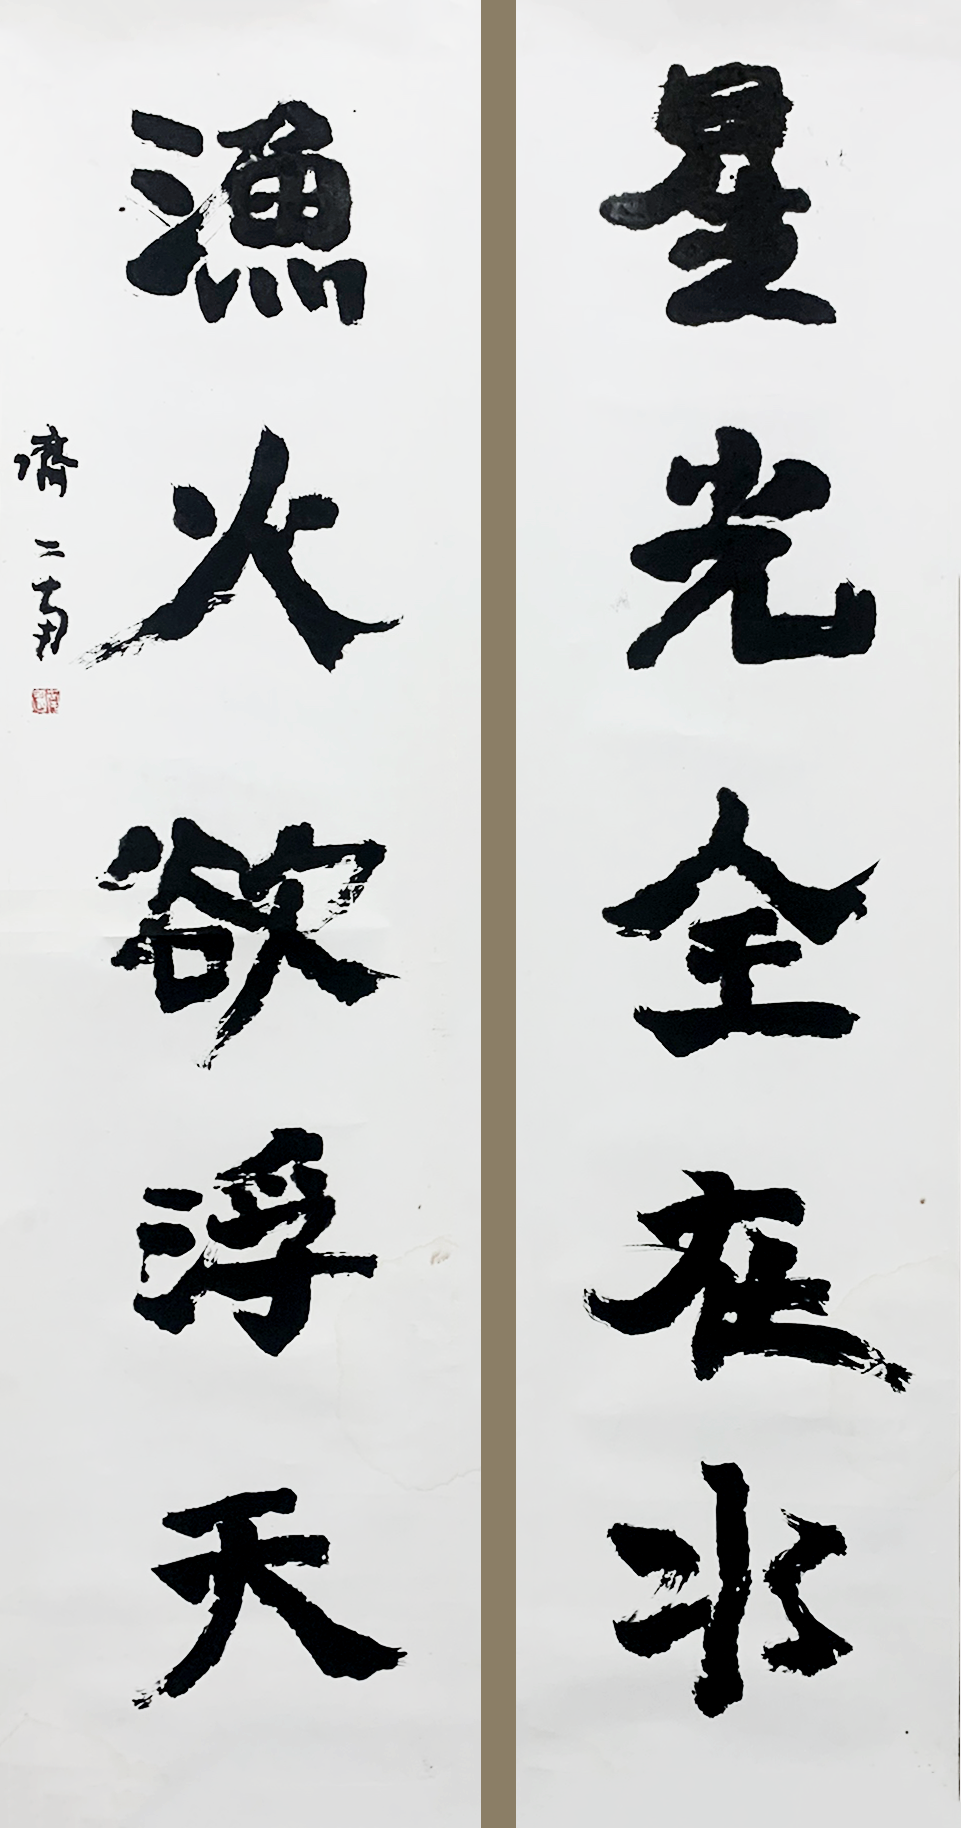 星光全在水
漁火欲浮天
濟南